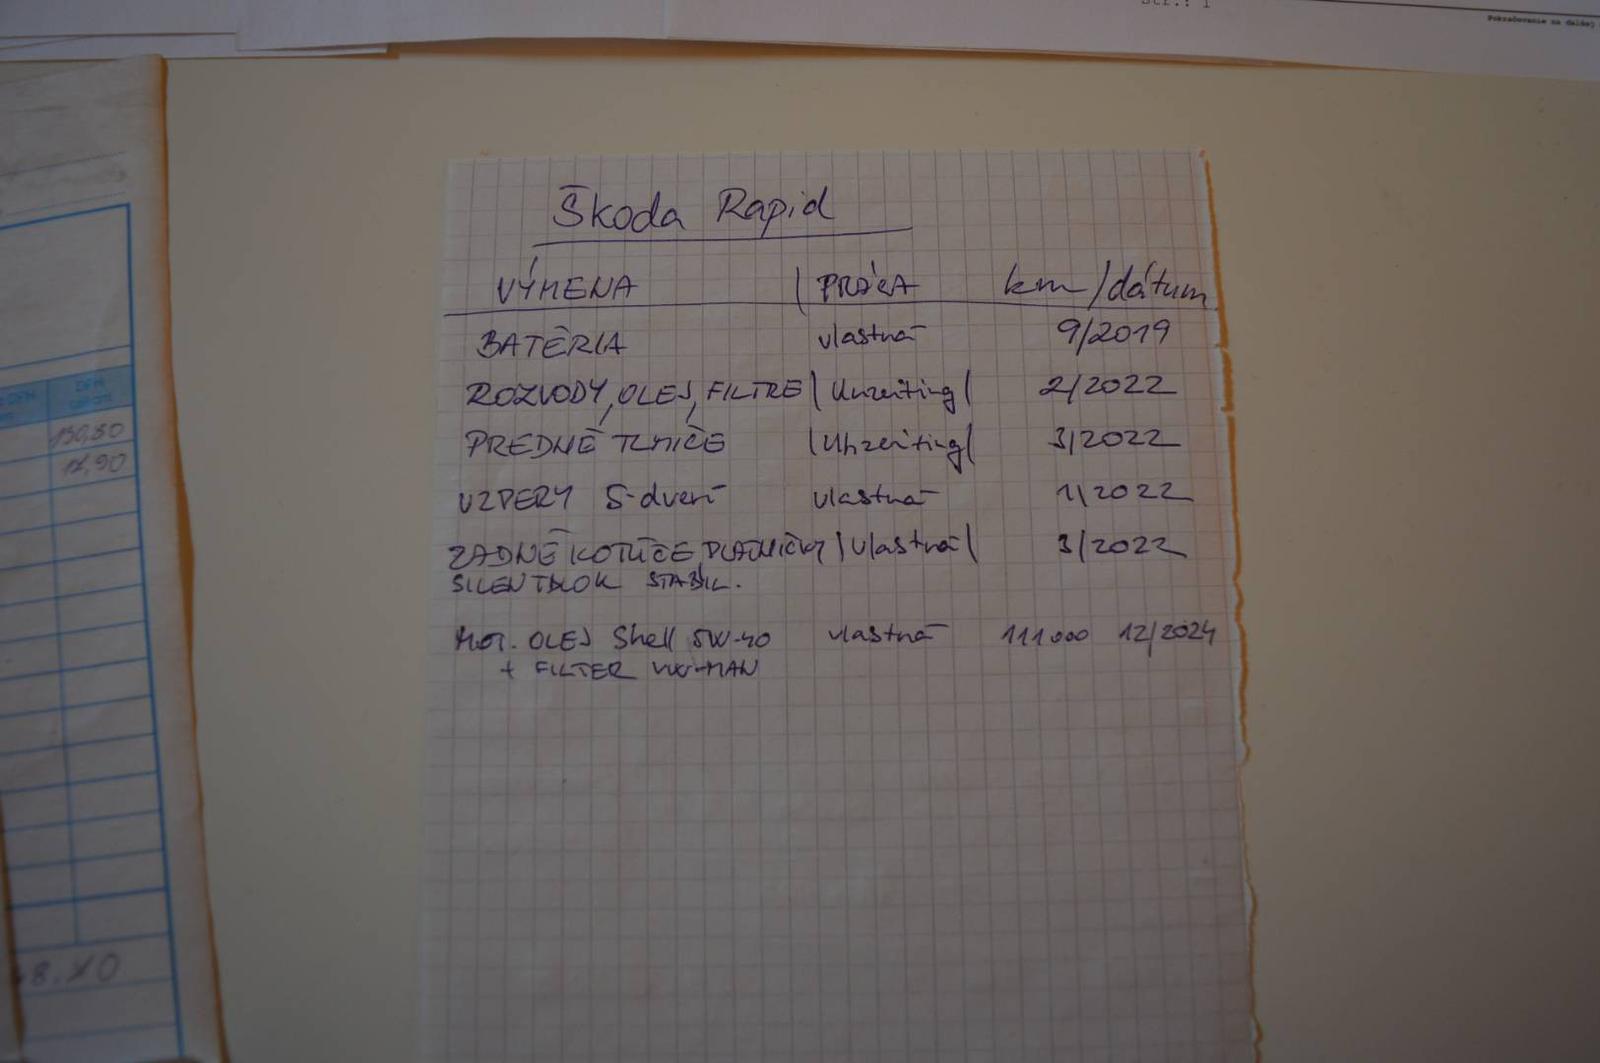 Str.: 1
Pokračovanie na ďalšej
Škoda Rapid
VÝMENA | PRÁCA km / dátum
BATÉRIA vlastná 9/2019
ROZVODY, OLEJ, FILTRE | Unzeiting | 2/2022
PREDNÉ TLMIČE | Unzeiting | 3/2022
VZPERY 5-dverí vlastná 1/2022
ZADNÉ KOTÚČE, PLATNIČKY | vlastná | 3/2022
SILENTBLOK STABIL.
MOT. OLEJ Shell 5W-40 vlastná 111000 12/2024
+ FILTER VW-MAN
DPH
130,80
17,90